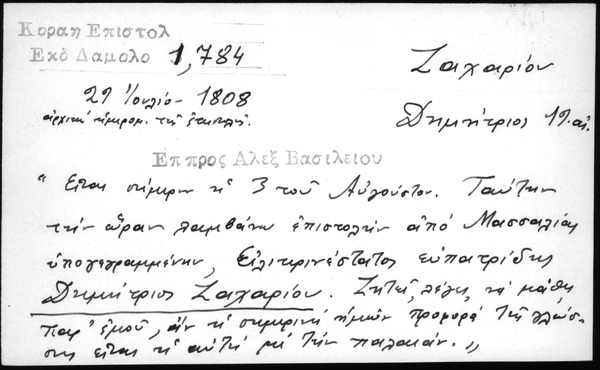 Κοραη Επιστολ
Εκδ Δαμαλο 1,784
Ζαχαρίου
29 Ιουλίο- 1808
Δημήτριος 19. αἰ.
ἀρχική ἡμερομ. τῆς ἐπιστολῆς.
Επ προς Αλεξ Βασιλειου
"Εἶναι σήμερον ἡ 3 τοῦ Αὐγούστου. Ταύτην
τὴν ὥραν λαμβάνω ἐπιστολὴν ἀπό Μασσαλίας
ὑπογεγραμμένην, Εἰλικρινέστατος εὐπατρίδης
Δημήτριος Ζαχαρίου. Ζητεῖ, λέγει, νά μάθῃ
παρ' ἐμοῦ, ἄν ἡ σημερινή ἡμῶν προφορά τῆς γλώσ-
σης εἶναι ἡ αὐτή μέ τήν παλαιάν."